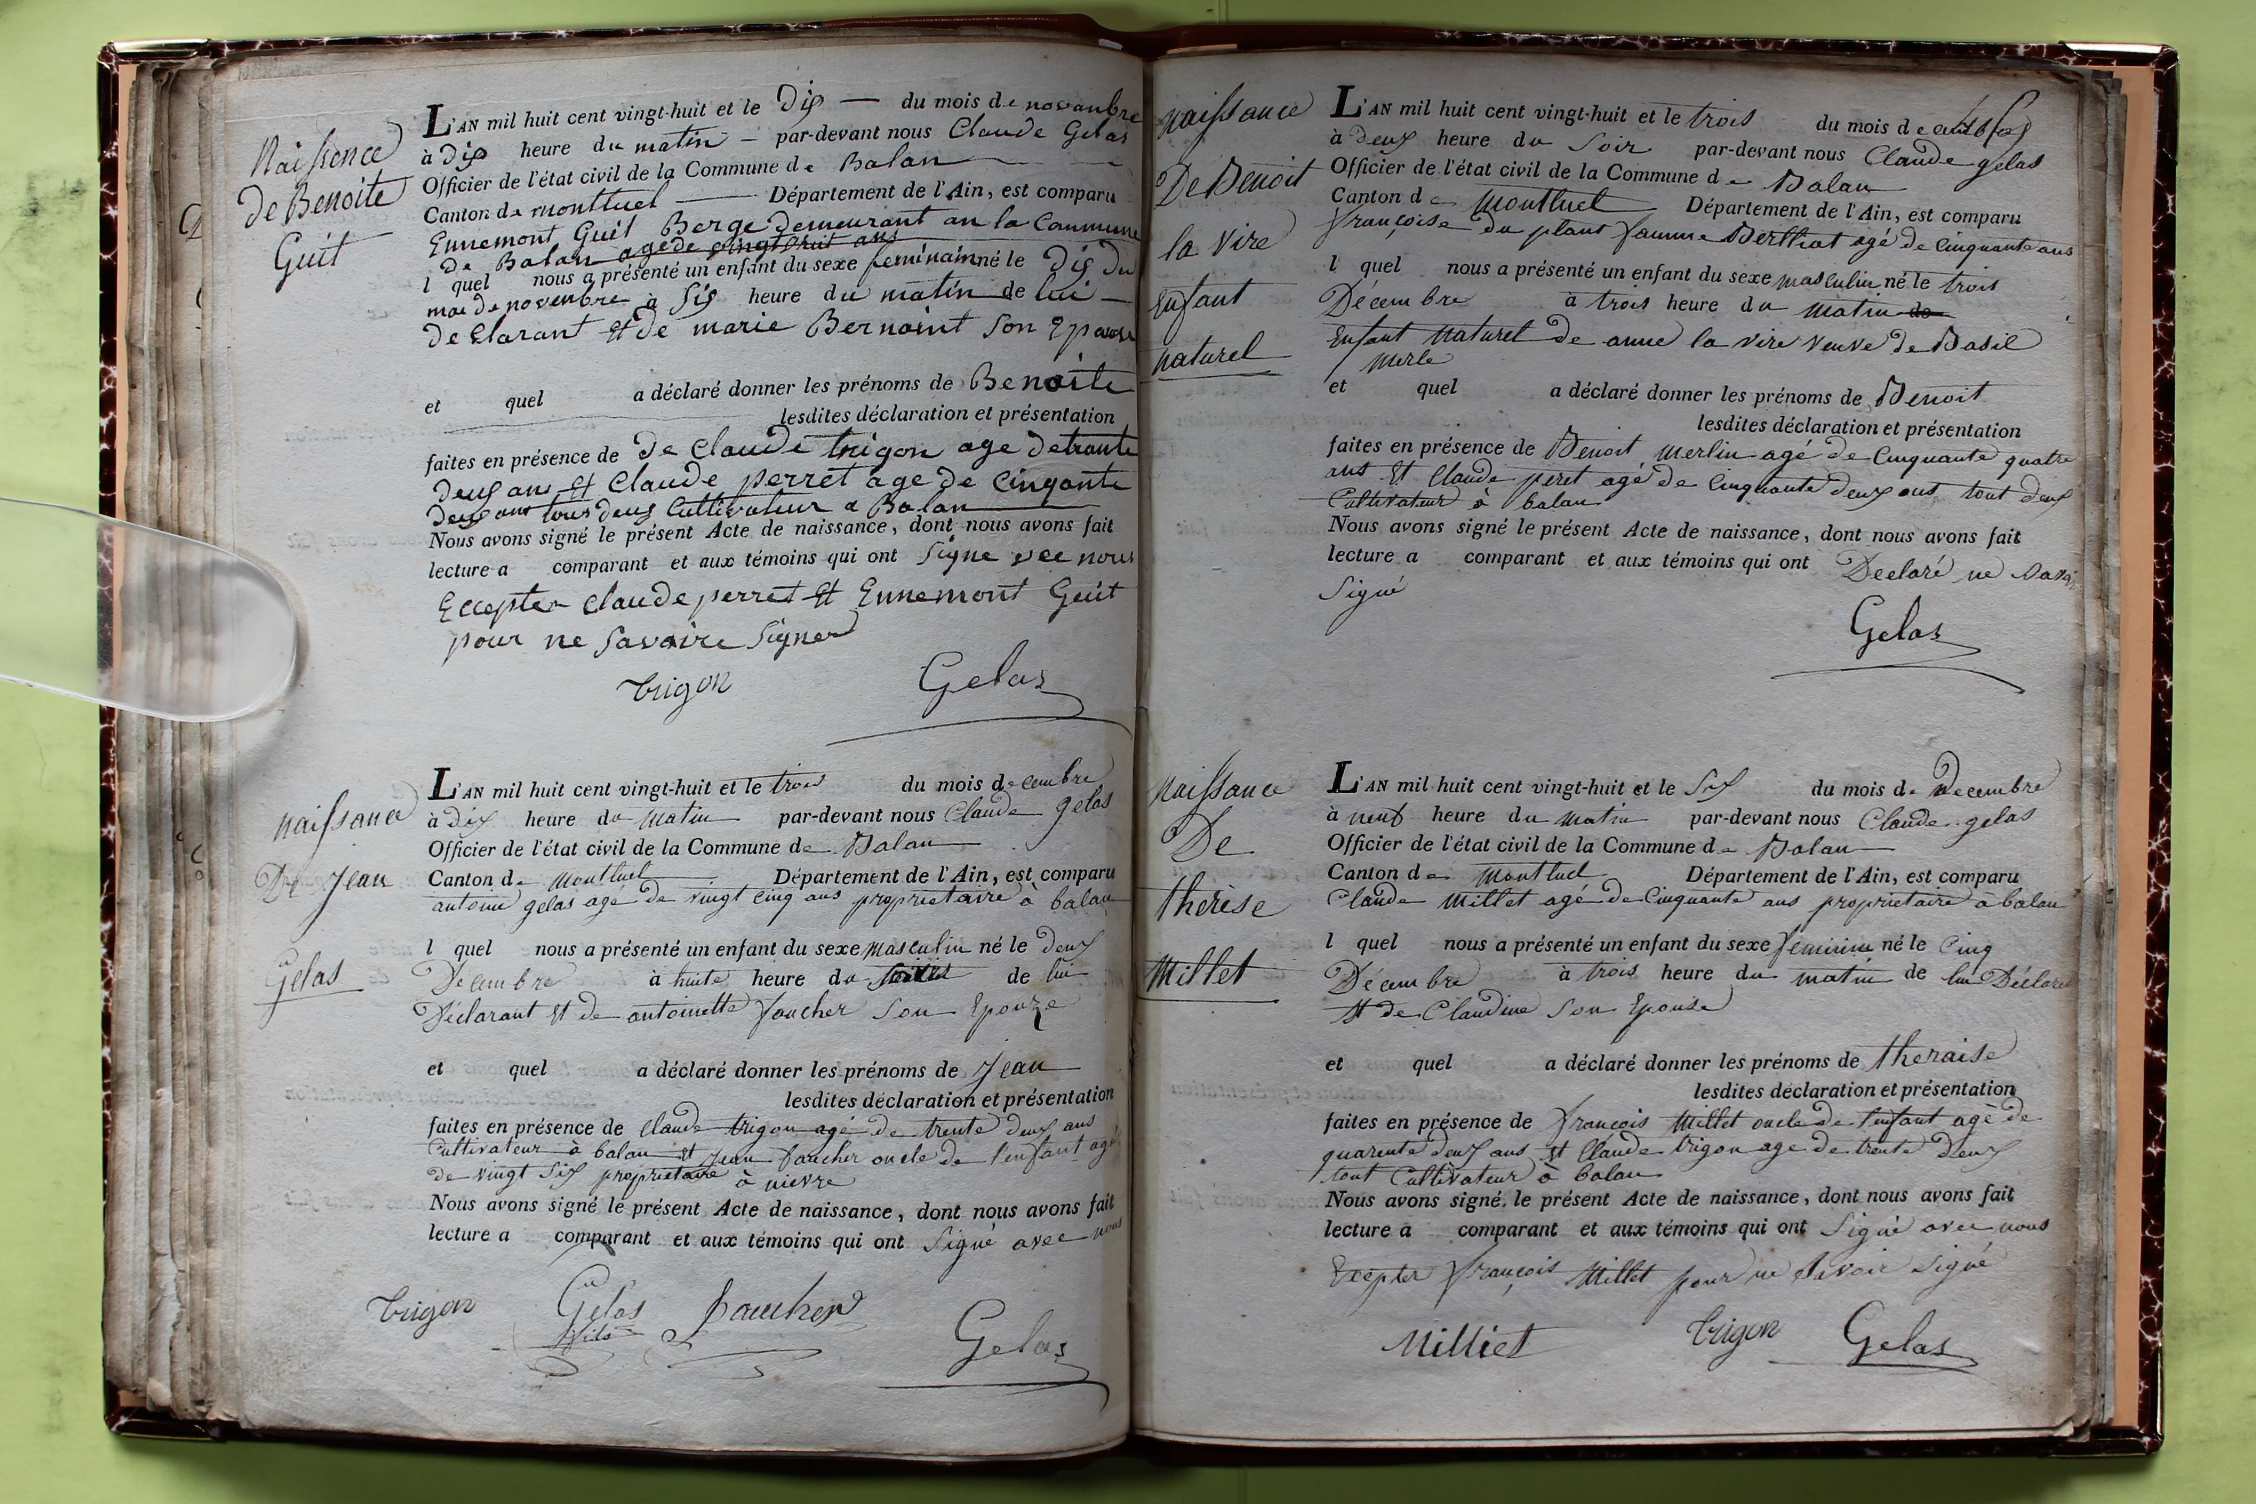 Naissence
de Benoite
Guit
L'AN mil huit cent vingt-huit et le Dix — du mois de novanbre
à Dix heure du matin — par-devant nous Claude Gelas
Officier de l'état civil de la Commune de Balan
Canton de montluel Département de l'Ain, est comparu
Ennemont Guit Berge demeurant an la Commune
de Balan age de vingt huit ans
l quel nous a présenté un enfant du sexe feminain né le Dix du
moi de novenbre à Six heure du matin de lui
de Clarant Et de marie Bernaint Son Epouse
et quel a déclaré donner les prénoms de Benoite
lesdites déclaration et présentation
faites en présence de de Claude trigon age de trante
deux ans Et Claude perret age de cinqante
deux ans tous deux Cultivateur a Balan
Nous avons signé le présent Acte de naissance, dont nous avons fait
lecture a comparant et aux témoins qui ont Signe vec nous
Eccepter Claude perret Et Ennemont Guit
pour ne Savoire Signer
trigon Gelas
naissance
De Jean
Gelas
L'AN mil huit cent vingt-huit et le trois du mois decembre
à dix heure du matin par-devant nous Claude gelas
Officier de l'état civil de la Commune de Balan
Canton de Montluel Département de l'Ain, est comparu
antoine gelas agé de vingt cinq ans proprietaire à balan
l quel nous a présenté un enfant du sexe masculin né le deux
Decembre à huite heure du de lui
Déclarant Et de antoinette foucher Son Epouze
et quel a déclaré donner les prénoms de Jean
lesdites déclaration et présentation
faites en présence de Claude trigon agé de trente deux ans
Cultivateur à balan Et Jean faucher oncle de l'enfant agé
de vingt Six proprietaire à nievre
Nous avons signé le présent Acte de naissance, dont nous avons fait
lecture a comparant et aux témoins qui ont Signé avec nous
trigon Gelas faucher
Gelas
naissance
De Benoit
la vire
enfant
naturel
L'AN mil huit cent vingt-huit et le trois du mois de
à deux heure du Soir par-devant nous Claude gelas
Officier de l'état civil de la Commune de Balan
Canton de Montluel Département de l'Ain, est comparu
françoise du plant famme Berthat agé de cinquante ans
l quel nous a présenté un enfant du sexe masculin né le trois
Décembre à trois heure du matin de
Enfant naturel de anne la vire veuve de Basil
Merle
et quel a déclaré donner les prénoms de Benoit
lesdites déclaration et présentation
faites en présence de Benoit merlin agé de Cinquante quatre
ans Et Claude peret agé de Cinquante deux ans tout deux
Cultivateur à balan
Nous avons signé le présent Acte de naissance, dont nous avons fait
lecture a comparant et aux témoins qui ont Declaré ne Savoir
Signé
Gelas
naissance
De
therèse
Millet
L'AN mil huit cent vingt-huit et le Six du mois de Decembre
à neuf heure du matin par-devant nous Claude gelas
Officier de l'état civil de la Commune de Balan
Canton de Montluel Département de l'Ain, est comparu
Claude Millet agé de Cinquante ans proprietaire a balan
l quel nous a présenté un enfant du sexe féminin né le Cinq
Décembre à trois heure du matin de lui Déclarant
Et de Claudine Son Epouse
et quel a déclaré donner les prénoms de theraise
lesdites déclaration et présentation
faites en présence de françois Millet oncle de l'enfant agé de
quarente deux ans Et Claude trigon age de trente deux
tout Cultivateur à balan
Nous avons signé le présent Acte de naissance, dont nous avons fait
lecture a comparant et aux témoins qui ont Signé avec nous
Excepter françois Millet pour ne Savoir Signé
Milliet trigon Gelas